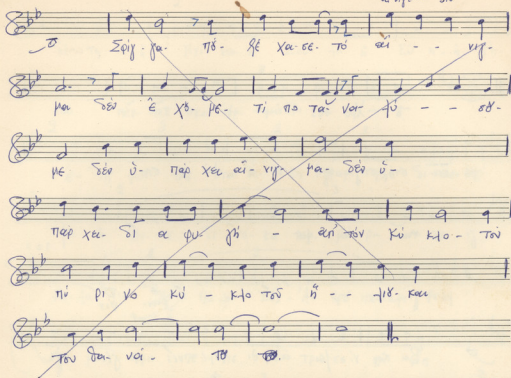 Σφίγ- γα- πύ- λέ χα- σε- τό αἴ - - νιγ-
μα δέν ἔ χου- με- τί πο τα- να- λύ - - σου-
με δέν ὑ- πάρ χει αἴ- νιγ- μα- δέν ὑ-
πάρ χει- δι α φυ- γή - ἀπ' τόν κύ κλο- τοῦ
πύ ρι νο κύ - κλο τοῦ ἥ - - λιου- και
του θα- νά- του